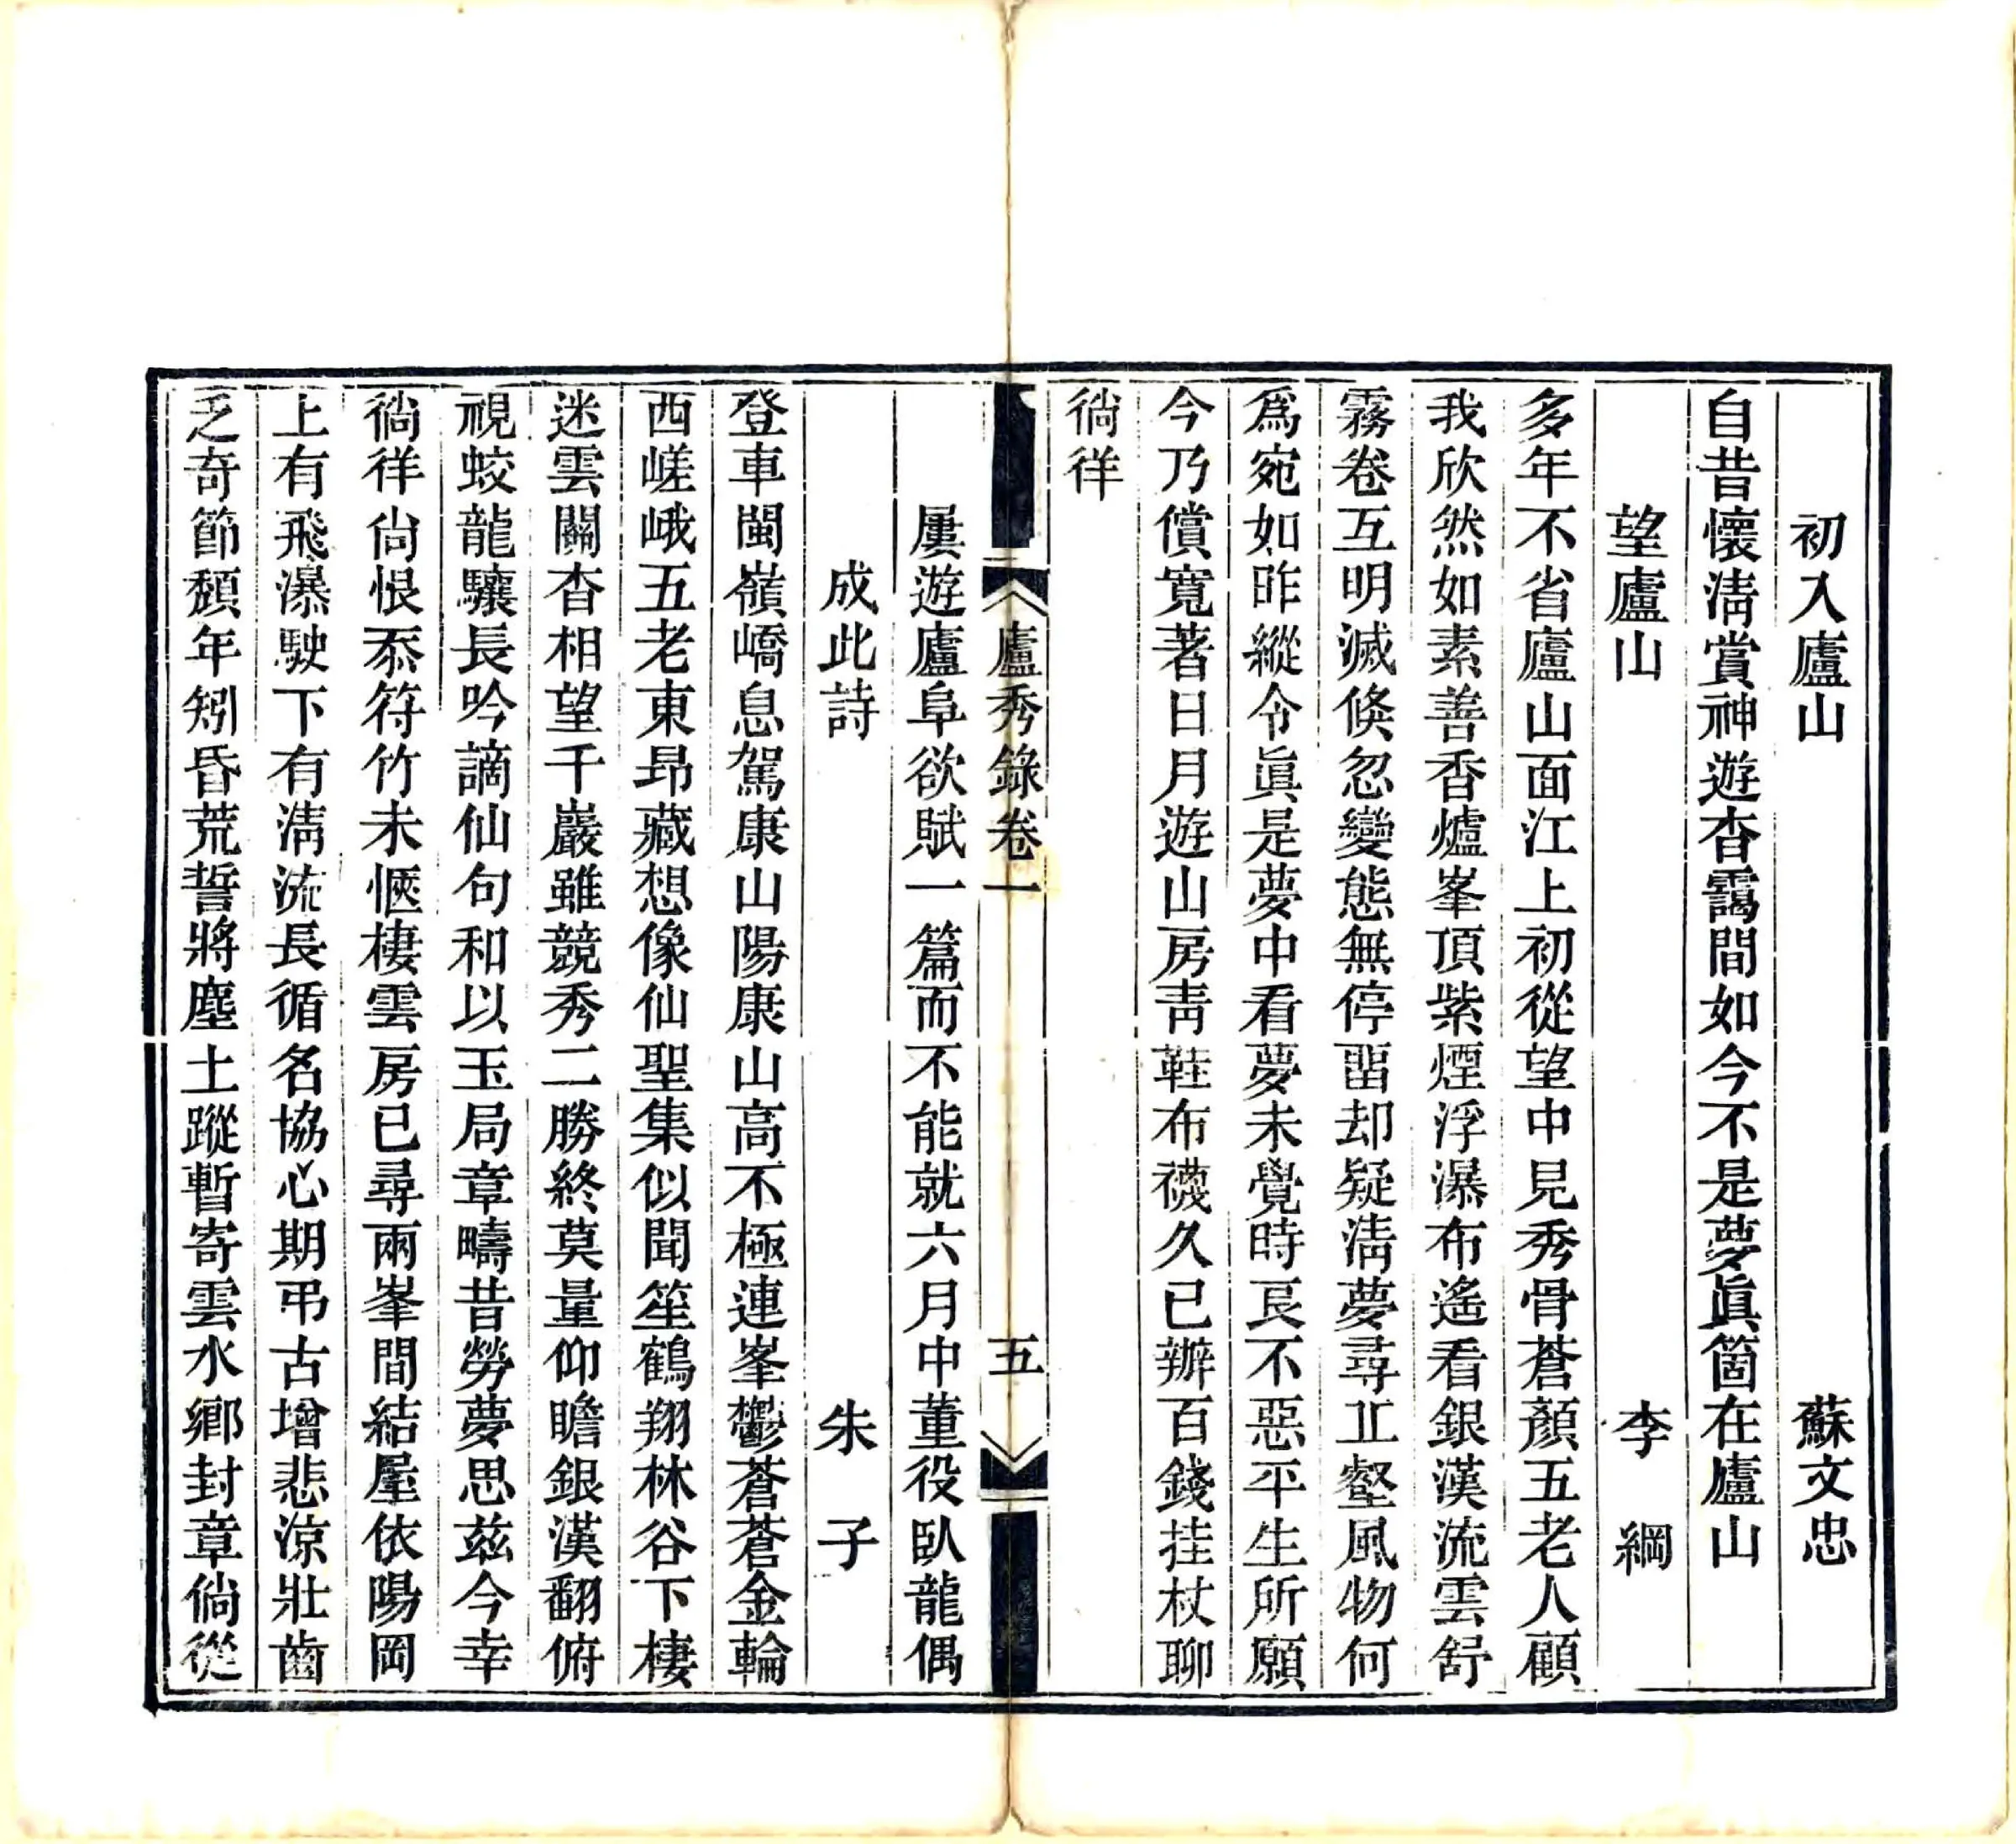 初入廬山　蘇文忠
自昔懷淸賞神遊杳靄間如今不是夢眞箇在廬山
望廬山　李　綱
多年不省廬山面江上初從望中見秀骨蒼顏五老人顧
我欣然如素善香爐峯頂紫煙浮瀑布遙看銀漢流雲舒
霧卷互明滅倐忽變態無停畱却疑淸夢尋丠壑風物何
爲宛如昨縱令眞是夢中看夢未覺時良不惡平生所願
今乃償寬著日月遊山房靑鞋布襪久已辦百錢挂杖聊
徜徉
廬秀錄卷一　五
屢遊廬阜欲賦一篇而不能就六月中董役臥龍偶
成此詩　朱　子
登車閩嶺嶠息駕康山陽康山高不極連峯鬱蒼蒼金輪
西嵯峨五老東昂藏想像仙聖集似聞笙鶴翔林谷下棲
迷雲關杳相望千巖雖競秀二勝終莫量仰瞻銀漢翻俯
視蛟龍驤長吟謫仙句和以玉局章疇昔勞夢思茲今幸
徜徉尙恨忝符竹未愜棲雲房已尋兩峯間結屋依陽岡
上有飛瀑駛下有淸流長循名協心期弔古增悲涼壯齒
乏奇節頹年矧昏荒誓將塵土蹤暫寄雲水鄕封章倘從